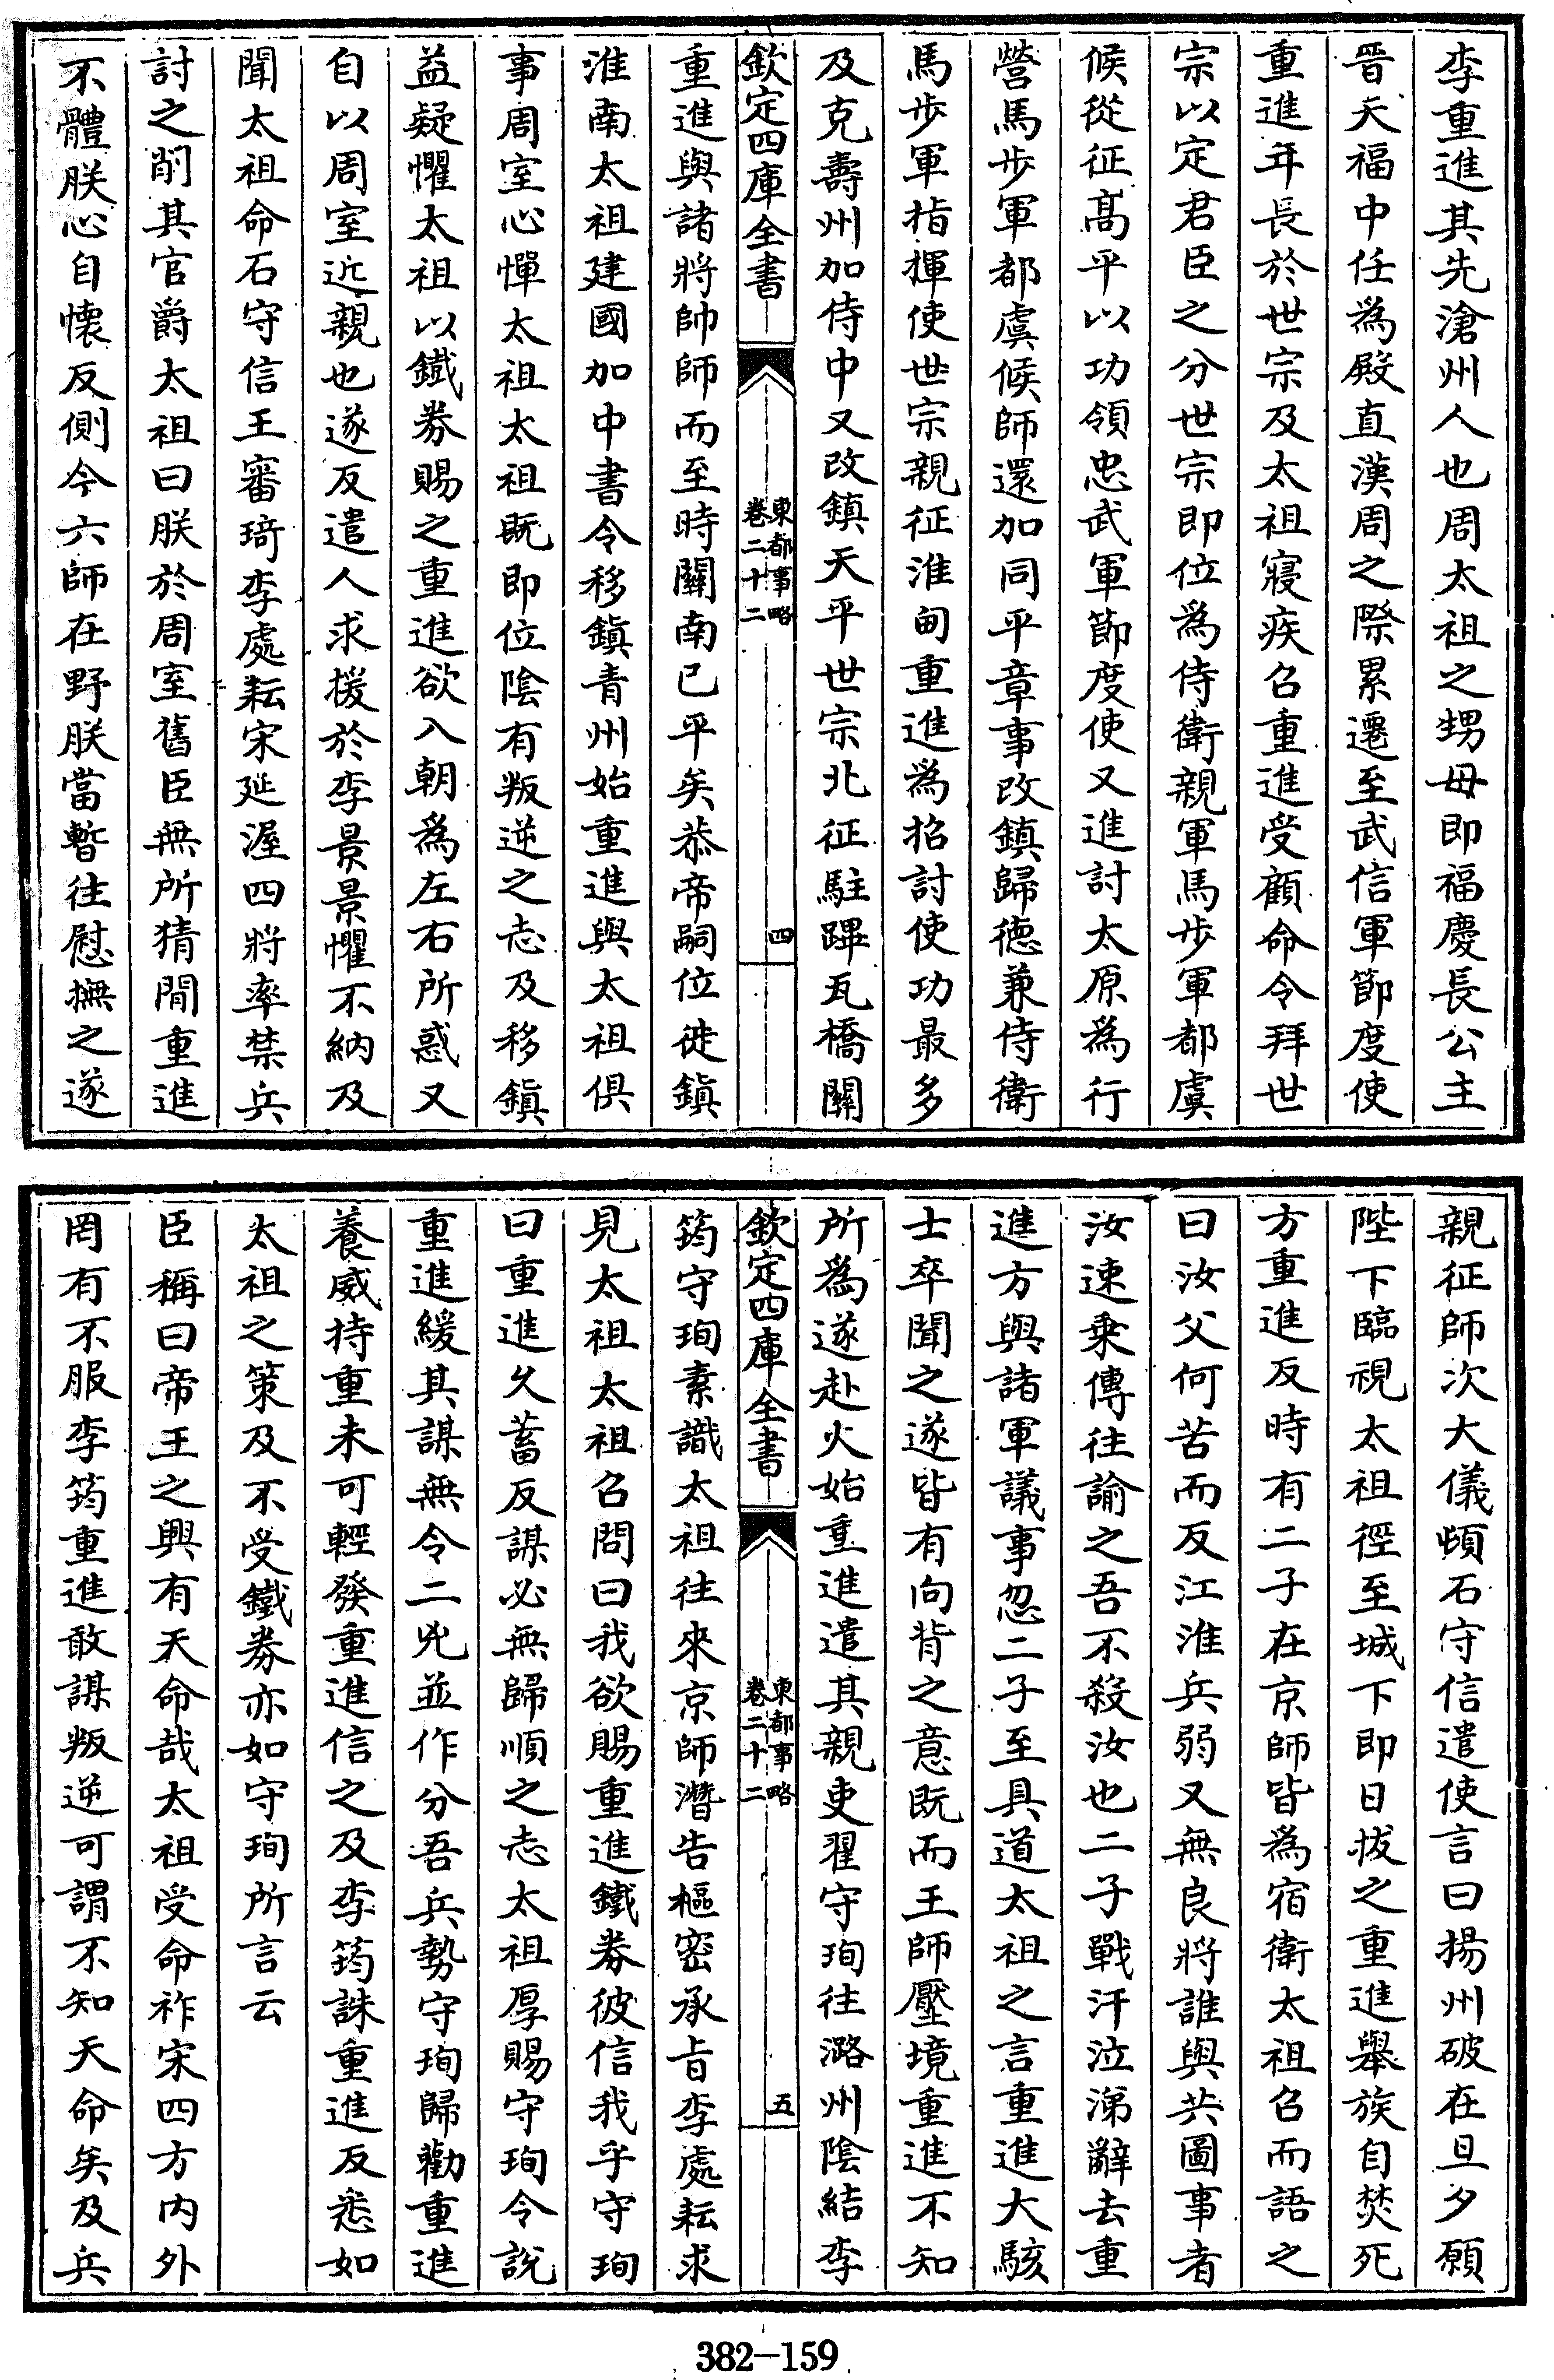 李重進其先滄州人也周太祖之甥母即福慶長公主
晉天福中任為殿直漢周之際累遷至武信軍節度使
重進年長於世宗及太祖寢疾召重進受顧命令拜世
宗以定君臣之分世宗即位為侍衛親軍馬步軍都虞
候從征髙平以功領忠武軍節度使又進討太原為行
營馬步軍都虞候師還加同平章事改鎮歸徳兼侍衛
馬步軍指揮使世宗親征淮甸重進為招討使功最多
及克壽州加侍中又改鎮天平世宗北征駐蹕瓦橋關
欽定四庫全書
東都事略
卷二十二
四
重進與諸將帥師而至時關南已平矣恭帝嗣位徙鎮
淮南太祖建國加中書令移鎮青州始重進與太祖俱
事周室心憚太祖太祖既即位陰有叛逆之志及移鎮
益疑懼太祖以鐵券賜之重進欲入朝為左右所惑又
自以周室近親也遂反遣人求援於李景景懼不納及
聞太祖命石守信王審琦李處耘宋延渥四將率禁兵
討之削其官爵太祖曰朕於周室舊臣無所猜間重進
不體朕心自懷反側今六師在野朕當暫往慰撫之遂
親征師次大儀頓石守信遣使言曰揚州破在旦夕願
陛下臨視太祖徑至城下即日拔之重進舉族自焚死
方重進反時有二子在京師皆為宿衛太祖召而語之
曰汝父何苦而反江淮兵弱又無良將誰與共圖事者
汝速乗傳往諭之吾不殺汝也二子戰汗泣涕辭去重
進方與諸軍議事忽二子至具道太祖之言重進大駭
士卒聞之遂皆有向背之意既而王師壓境重進不知
所為遂赴火始重進遣其親吏翟守珣往潞州陰結李
欽定四庫全書
東都事略
卷二十二
五
筠守珣素識太祖往來京師潛告樞密承旨李處耘求
見太祖太祖召問曰我欲賜重進鐵券彼信我乎守珣
曰重進久蓄反謀必無歸順之志太祖厚賜守珣令說
重進緩其謀無令二兇並作分吾兵勢守珣歸勸重進
養威持重未可輕發重進信之及李筠誅重進反悉如
太祖之策及不受鐵券亦如守珣所言云
臣稱曰帝王之興有天命哉太祖受命祚宋四方内外
罔有不服李筠重進敢謀叛逆可謂不知天命矣及兵
382-159